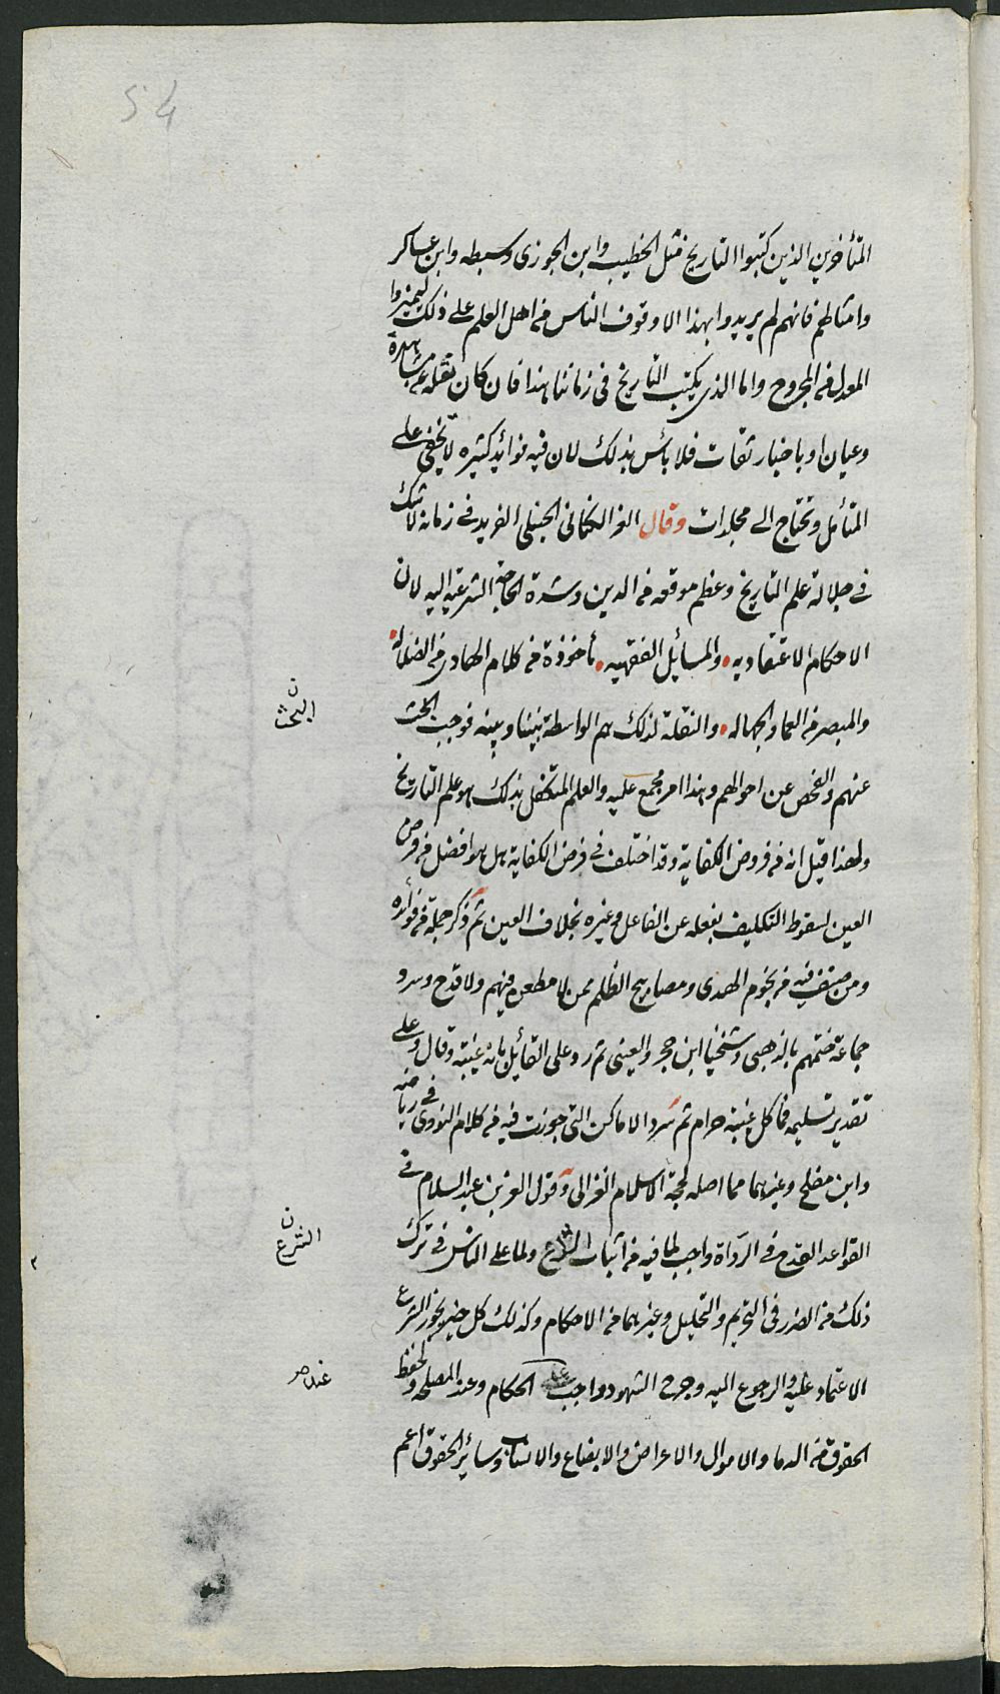 54
المتأخرين الذين كتبوا التاريخ مثل الخطيب وابن الجوزى وسبطه وابن عساكر
وامثالهم فانهم لم يريدوا بهذا الا وقوف الناس من اهل العلم على ذلك ليميزوا
المعدل من المجروح واما الذى يكتب التاريخ فى زماننا هذا فان كان نقله عن مشاهدة
وعيان او باخبار ثقات فلا بأس بذلك لان فيه فوائد كثيره لا تخفى على
المتأمل وتحتاج الى مجلدات وقال العز الكنانى الحنبلى الفريد فى زمانه لا شك
فى جلالة علم التاريخ وعظم موقعه من الدين وشدة الحاجة الشرعيه اليه لان
الاحكام الاعتقاديه والمسايل الفقهيه مأخوذة من كلام الهادى من الضلاله
والمبصر من العما والجهاله والنقلة لذلك هم الواسطة بيننا وبينه فوجب البحث
ن
البحث
عنهم والفحص عن احوالهم وهذا امر مجمع عليه والعلم المتكفل بذلك هو علم التاريخ
ولهذا قيل انه من فروض الكفاية وقد اختلف فى فرض الكفاية هل هو افضل من فرض
العين لسقوط التكليف بفعله عن الفاعل وغيره بخلاف العين ثم ذكر جملة من فوائده
ومن صنف فيه من نجوم الهدى ومصابيح الظلم ممن لا مطعن فيهم ولا قدح وسرد
جماعة ختمهم بالذهبى وشيخنا ابن حجر والعينى ثم رد على القائل بانه غيبة وقال وعلى
تقدير تسليمه فما كل غيبة حرام ثم سرد الاماكن التى جوزت فيه من كلام النووى فى رياضه
وابن مفلح وغيرهما مما اصله لحجة الاسلام الغزالى وقول العز بن عبد السلام فى
القواعد القدح فى الرواة واجب لما فيه من اثبات الشرع ولما على الناس فى ترك
ن
الشرع
ذلك من الضرر فى التحريم والتحليل وغيرهما من الاحكام وكذلك كل خبر يجوز الشرع
الاعتماد عليه والرجوع اليه وجرح الشهود واجب على الحكام وعند المصلحه ولحفظ
الحقوق من الدما والاموال والاعراض والابضاع والانساب وسائر الحقوق اعم